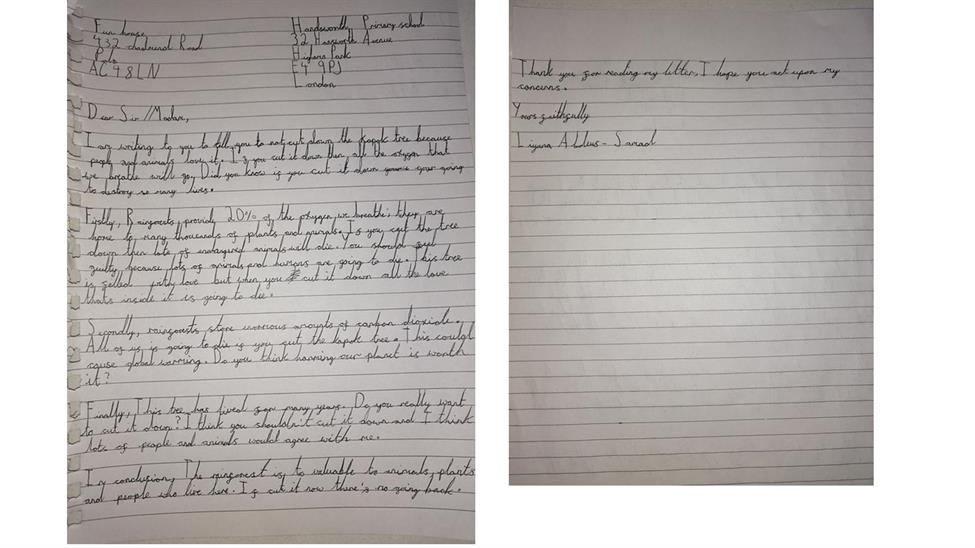 Fun house
432 Road
AC4 8LN
Handsworth Primary school
32 Avenue
Highams Park
E4 9PJ
London
Dear Sir//Madam,
I am writing to you to tell you to not cut down the kapok tree because
people and animals love it. If you cut it down then all the oxygen that
we breathe will go. Did you know if you cut it down your going
to destroy so many lives.
Firstly, Rainforests provide 20% of the oxygen we breathe; they are
home to many thousands of plants and animals. If you cut the tree
down then lots of endangered animals will die. You should feel
guilty because lots of animals and humans are going to die. This tree
is filled with love but when you cut it down all the love
thats inside it is going to die.
Secondly, rainforests store enormous amounts of carbon dioxide.
All of us is going to die if you cut the kapok tree. This could
cause global warming. Do you think harming our planet is worth
it?
Finally, This tree has lived for many years. Do you really want
to cut it down? I think you shouldn't cut it down and I think
lots of people and animals would agree with me.
In conclusion, The rainforest is to valuable to animals, plants
and people who live here. If cut it now there's no going back.
Thank you for reading my letter, I hope you act upon my
concerns.
Yours faithfully